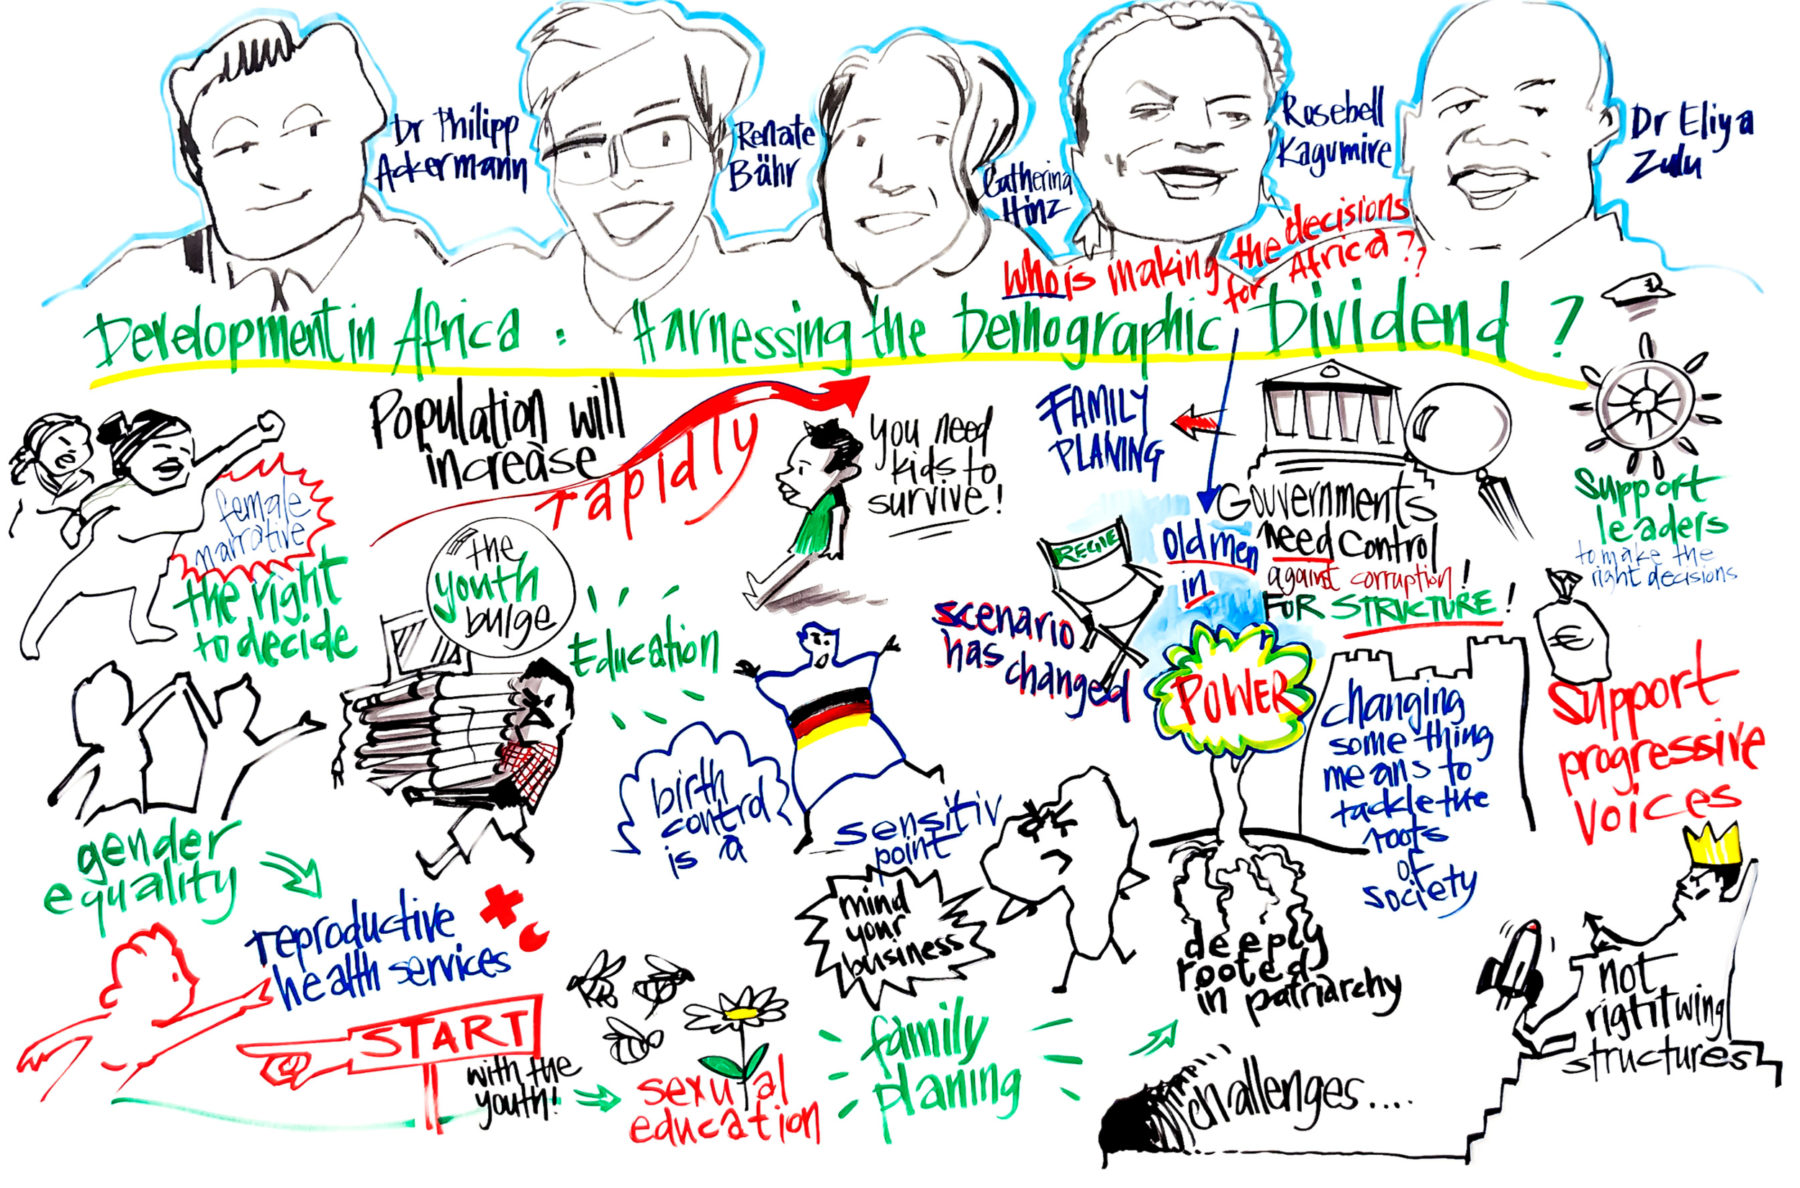 Dr Philipp
Ackermann
Renate
Bähr
Catherina
Hinz
Rosebell
Kagumire
Dr Eliya
Zulu
Who is making the decisions
for Africa??
Development in Africa : Harnessing the Demographic Dividend ?
female
narrative
the right
to decide
Population will
increase
rapidly
you need
kids to
survive!
the
youth
bulge
Education
FAMILY
PLANING
Gouvernments
need control
against corruption!
FOR STRUCTURE!
Support
leaders
to make the
right decisions
REGIE
scenario
has changed
old men
in
POWER
changing
some thing
means to
tackle the
roots
of
society
€
support
progressive
voices
gender
equality
reproductive
health services
START
with the
youth!
birth
control
is a
sensitiv
point
mind
your
business
deeply
rooted
in patriarchy
sexual
education
family
planing
challenges....
not
right wing
structures